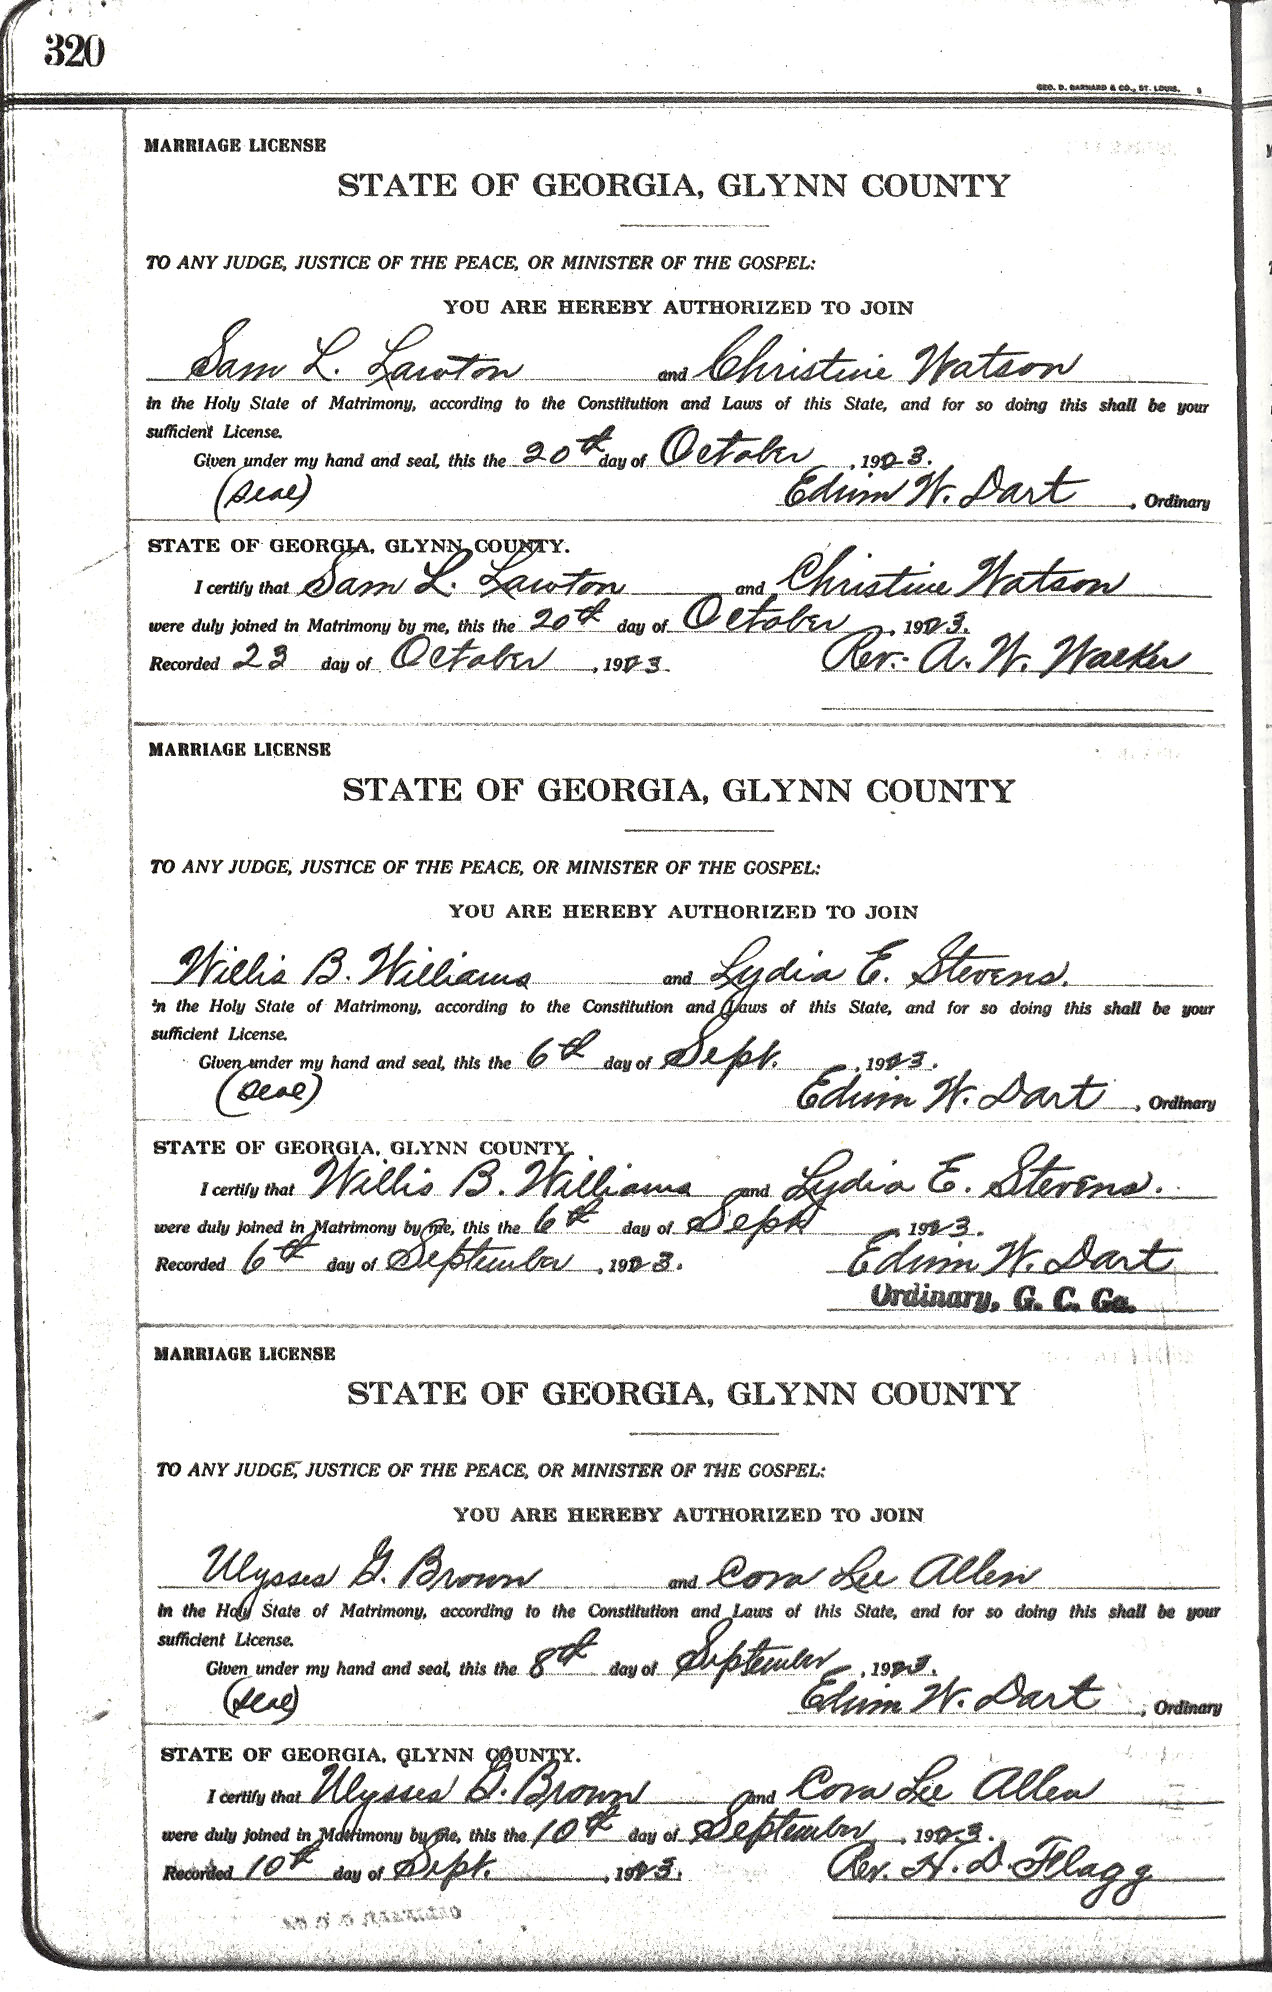 320
GEO. D. BARNARD & CO., ST. LOUIS.
MARRIAGE LICENSE
STATE OF GEORGIA, GLYNN COUNTY
TO ANY JUDGE, JUSTICE OF THE PEACE, OR MINISTER OF THE GOSPEL:
YOU ARE HEREBY AUTHORIZED TO JOIN
Sam L. Lawton and Christine Watson
in the Holy State of Matrimony, according to the Constitution and Laws of this State, and for so doing this shall be your
sufficient License.
Given under my hand and seal, this the 20th day of October, 1923.
(Seal) Edwin W. Dart, Ordinary
STATE OF GEORGIA, GLYNN COUNTY.
I certify that Sam L. Lawton and Christine Watson
were duly joined in Matrimony by me, this the 20th day of October, 1923.
Recorded 23 day of October, 1923. Rev. A. W. Walker
MARRIAGE LICENSE
STATE OF GEORGIA, GLYNN COUNTY
TO ANY JUDGE, JUSTICE OF THE PEACE, OR MINISTER OF THE GOSPEL:
YOU ARE HEREBY AUTHORIZED TO JOIN
Willis B. Williams and Lydia E. Stevens.
in the Holy State of Matrimony, according to the Constitution and Laws of this State, and for so doing this shall be your
sufficient License.
Given under my hand and seal, this the 6th day of Sept., 1923.
(Seal) Edwin W. Dart, Ordinary
STATE OF GEORGIA, GLYNN COUNTY.
I certify that Willis B. Williams and Lydia E. Stevens.
were duly joined in Matrimony by me, this the 6th day of Sept, 1923.
Recorded 6th day of September, 1923. Edwin W. Dart
Ordinary, G. C. Ga.
MARRIAGE LICENSE
STATE OF GEORGIA, GLYNN COUNTY
TO ANY JUDGE, JUSTICE OF THE PEACE, OR MINISTER OF THE GOSPEL:
YOU ARE HEREBY AUTHORIZED TO JOIN
Ulysses G. Brown and Cora Lee Allen
in the Holy State of Matrimony, according to the Constitution and Laws of this State, and for so doing this shall be your
sufficient License.
Given under my hand and seal, this the 8th day of September, 1923.
(Seal) Edwin W. Dart, Ordinary
STATE OF GEORGIA, GLYNN COUNTY.
I certify that Ulysses G. Brown and Cora Lee Allen
were duly joined in Matrimony by me, this the 10th day of September, 1923.
Recorded 10th day of Sept., 1923. Rev. H. D. Flagg